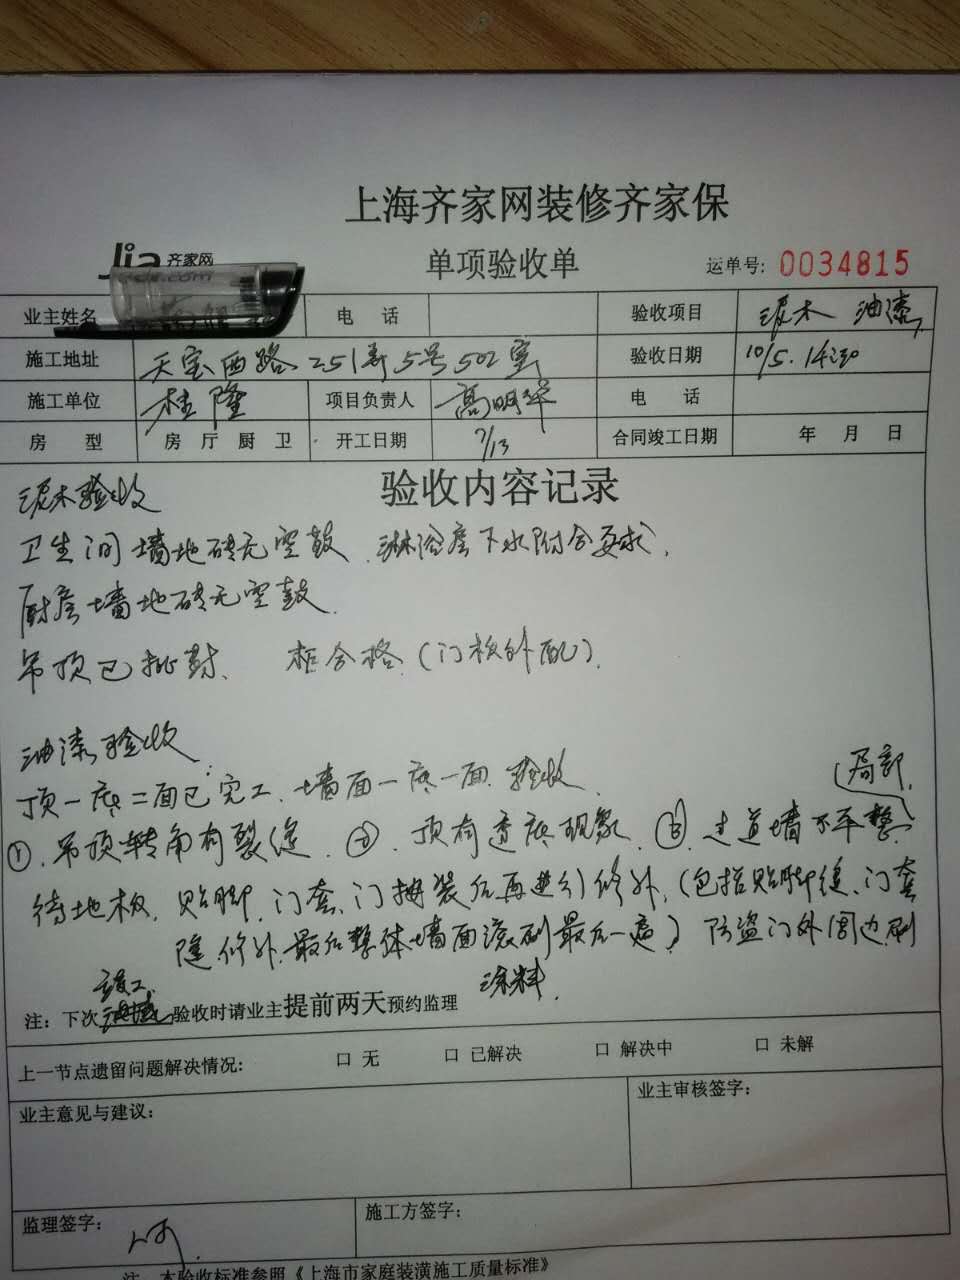 上海齐家网装修齐家保
Jia 齐家网
.com
单项验收单
运单号: 0034815
业主姓名 电 话 验收项目 泥木 油漆
施工地址 天宝西路251弄5号502室 验收日期 10/5.14:30
施工单位 桂隆 项目负责人 高明华 电 话
房 型 房 厅 厨 卫 开工日期 7/13 合同竣工日期 年 月 日
验收内容记录
泥木验收
卫生间墙地砖无空鼓 淋浴房下水附合要求.
厨房墙地砖无空鼓.
吊顶已批封、 柜合格(门板外配).
油漆验收
顶一底二面已完工.墙面一底一面.验收 (局部)
①.吊顶转角有裂缝 ②.顶有透底现象 ③.走道墙不平整
待地板.贴脚.门套、门按装后再进行修补.(包括贴脚缝、门套
隆修补.最后整体墙面滚刷最后一底) 防盗门外周边刷
涂料.
竣工
注: 下次 验收时请业主提前两天预约监理
上一节点遗留问题解决情况: □ 无 □ 已解决 □ 解决中 □ 未解
业主意见与建议: 业主审核签字:
监理签字: 施工方签字:
注 本验收标准参照《上海市家庭装潢施工质量标准》